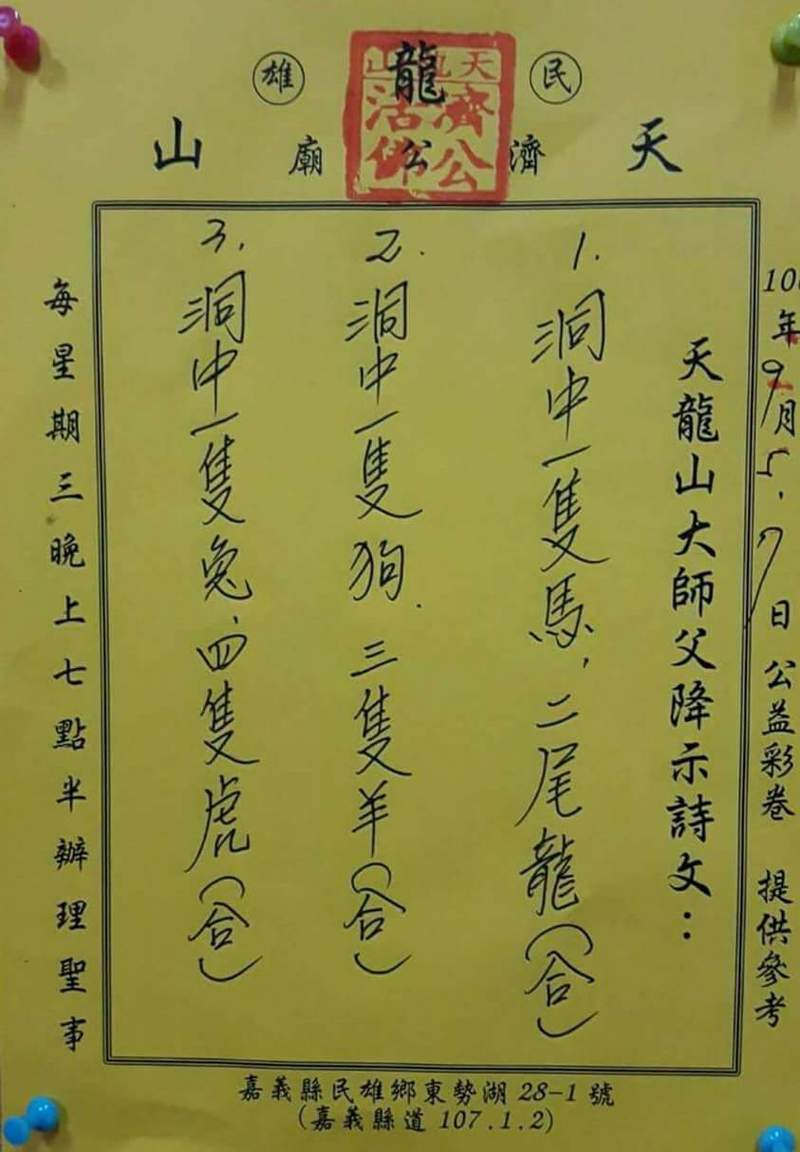 民雄
天龍山
濟公廟
天龍山
濟公
活佛
年9月5.7日公益彩卷 提供參考
天龍山大師父降示詩文：
1.洞中一隻馬，二尾龍(合)
2.洞中一隻狗．三隻羊(合)
3.洞中一隻兔、四隻虎(合)
每星期三晚上七點半辦理聖事
嘉義縣民雄鄉東勢湖28-1號
(嘉義縣道107.1.2)